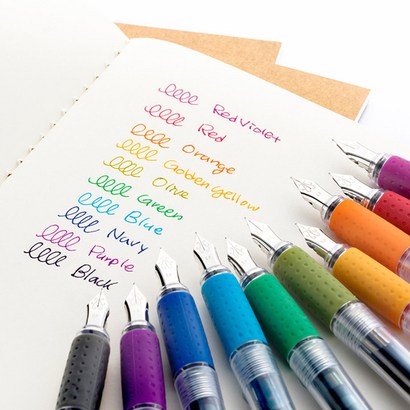 Red Violet
Red
Orange
Golden Yellow
Olive
Green
Blue
Navy
Purple
Black